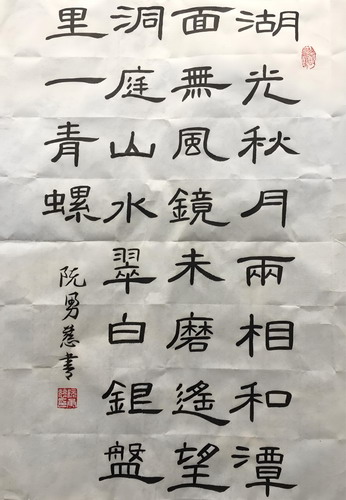 湖光秋月兩相和潭
面無風鏡未磨遙望
洞庭山水翠白銀盤
里一青螺
阮勇書